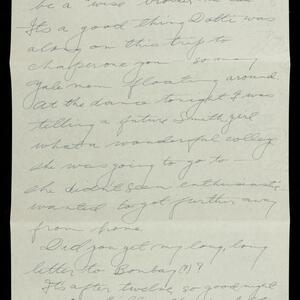 be a wise
Its a good thing Dotti was
along on this trip to
chaperone you so many
Yale men floating around.
At the dance tonight I was
telling a future Smith girl
what a wonderful college
she was going to go to —
she didn't seem enthusiastic
wanted to get further away
from home.
Did you get my long, long
letter to Bombay (?)?
Its after twelve, so good night